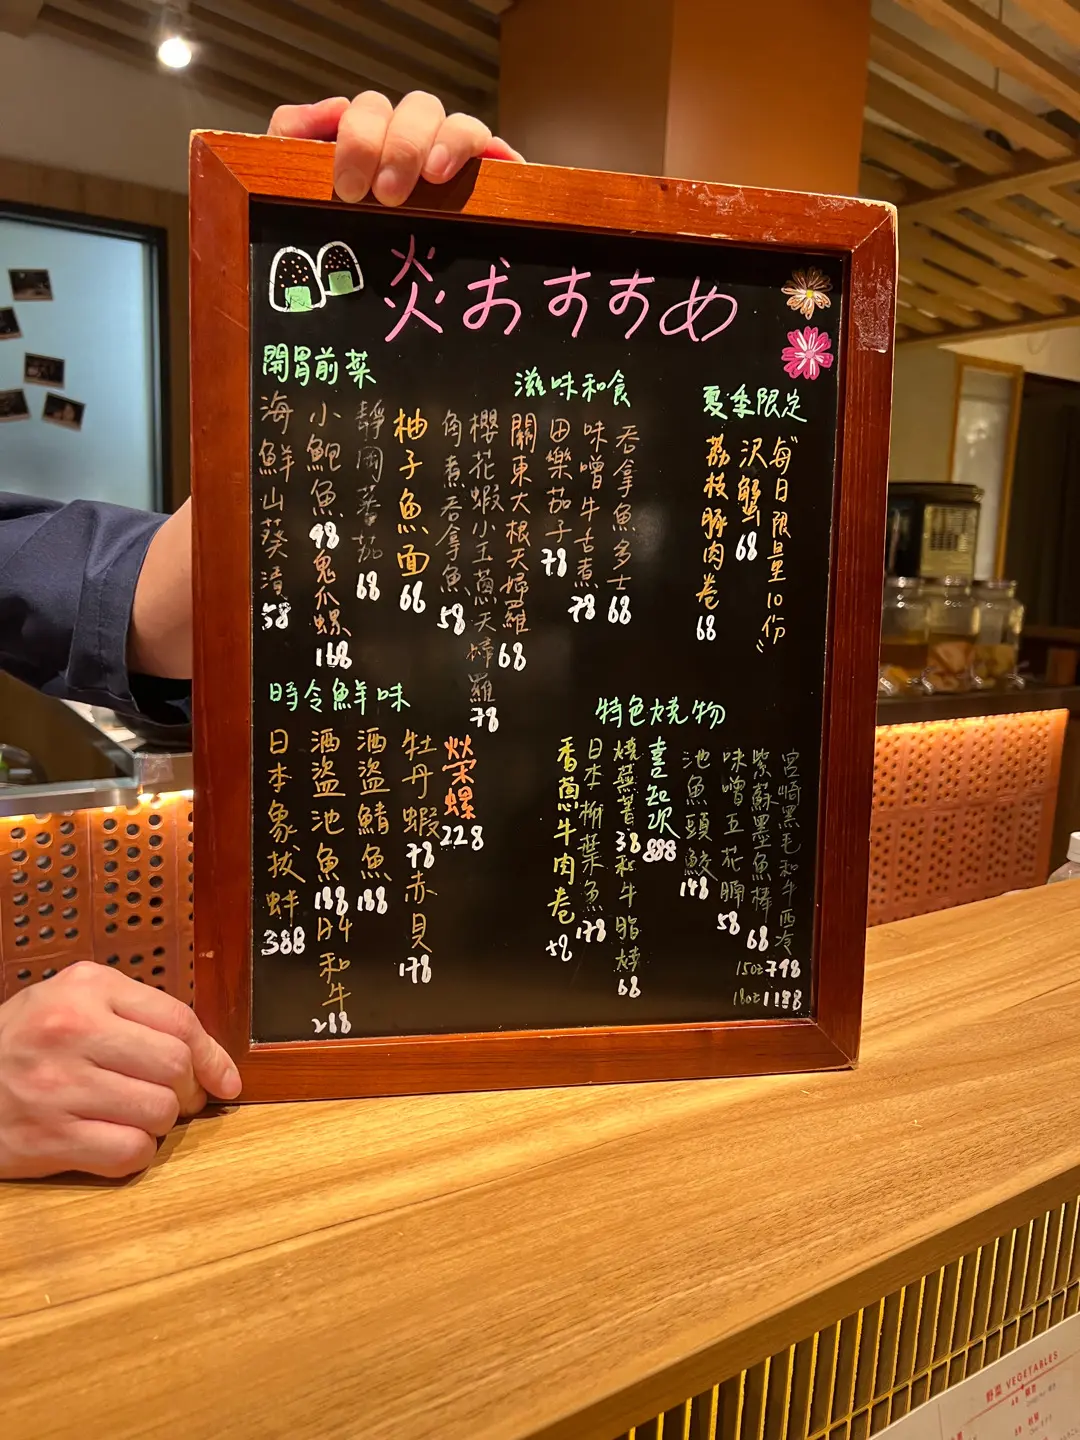 炎おすすめ
開胃前菜
海鮮山葵漬 58
小鮑魚 98
鬼爪螺 168
靜岡蕃茄 68
柚子魚面 66
角煮吞拿魚 58
櫻花蝦小玉蔥天婦羅 78
滋味和食
關東大根天婦羅 68
田樂茄子 78
味噌牛舌煮 78
吞拿魚多士 68
夏季限定
荔枝豚肉卷 68
沢蟹 68
"每日限量10份"
時令鮮味
日本象拔蚌 388
酒盜池魚 188
A4和牛 288
酒盜鯖魚 188
牡丹蝦 78
赤貝 178
榮螺 228
特色燒物
香蔥牛肉卷 58
日本柳葉魚 178
燒蕪菁 38
和牛脂燒 68
喜知次 888
池魚頭鮫 148
味噌五花腩 58
紫蘇墨魚棒 68
宮崎黑毛和牛西冷
15oz 798
18oz 1188
野菜 VEGETABLES